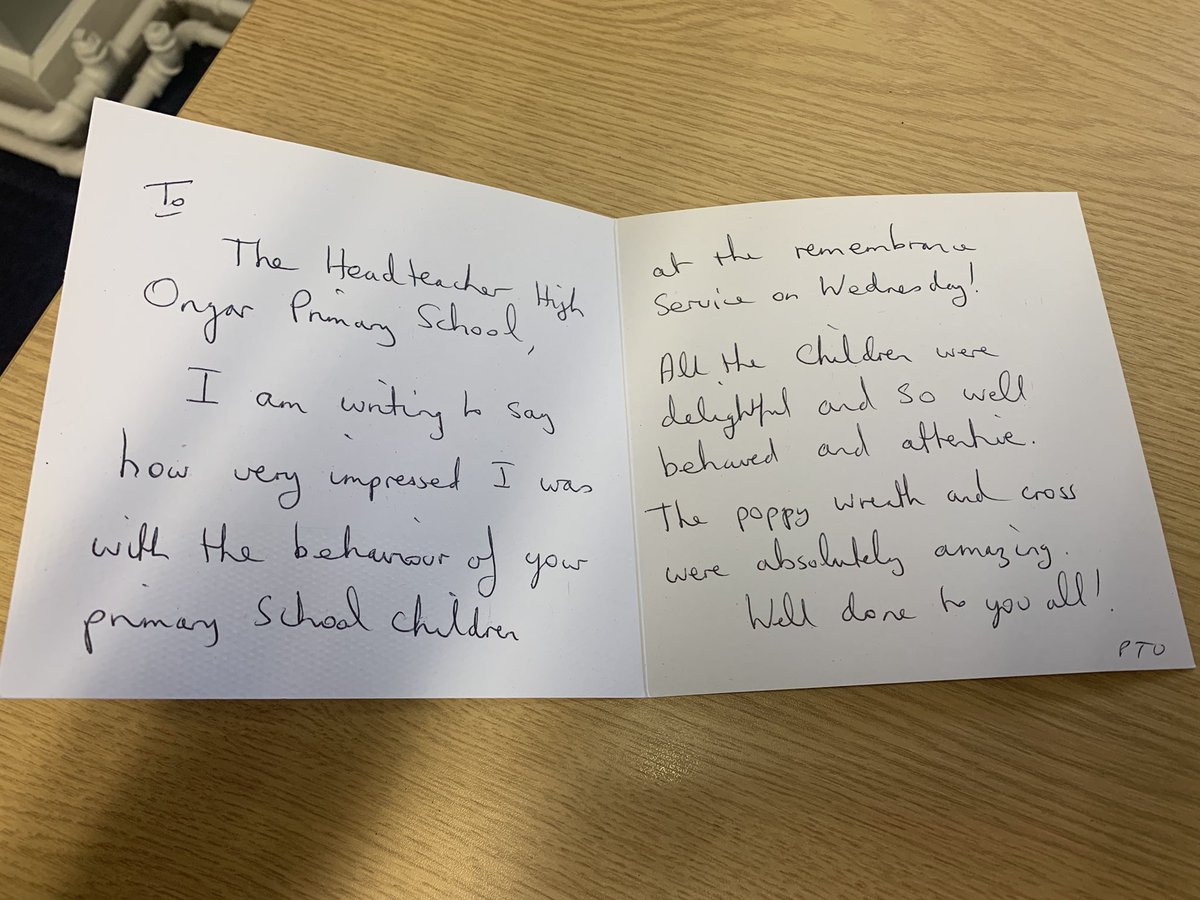 To
The Headteacher High
Ongar Primary School,
I am writing to say
how very impressed I was
with the behaviour of your
primary School children
at the remembrance
Service on Wednesday!
All the children were
delightful and so well
behaved and attentive.
The poppy wreath and cross
were absolutely amazing.
Well done to you all!
PTO